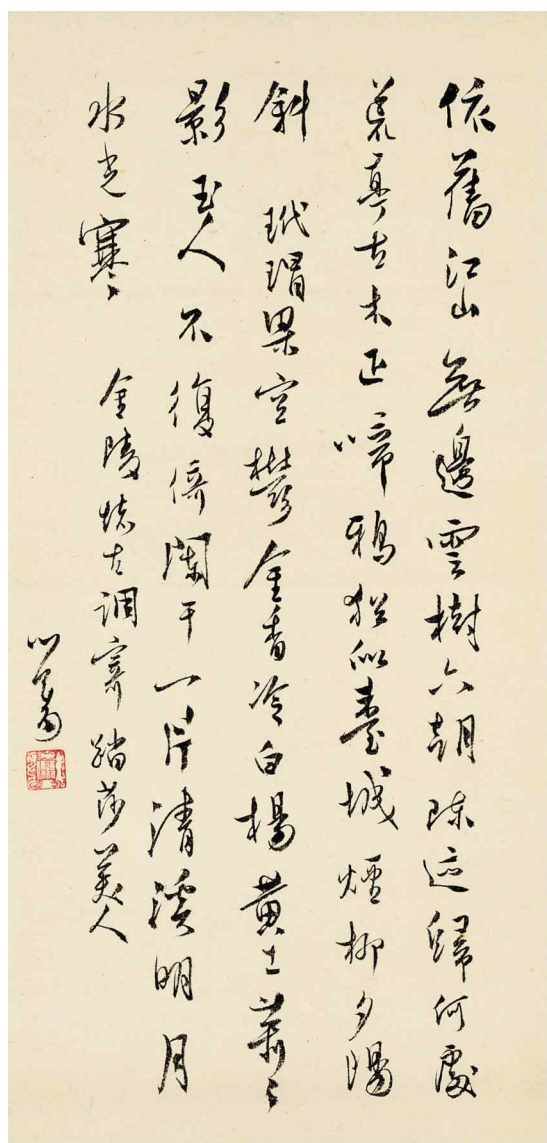 依舊江山無邊雲樹六朝陳迹歸何處
荒亭古木正啼鴉猶似臺城煙柳夕陽
斜 玳瑁梁空鬱金香冷白楊黃土蕭〻
影玉人不復倚闌干一片清溪明月
水光寒〻 金陵懷古調寄踏莎美人
心畬